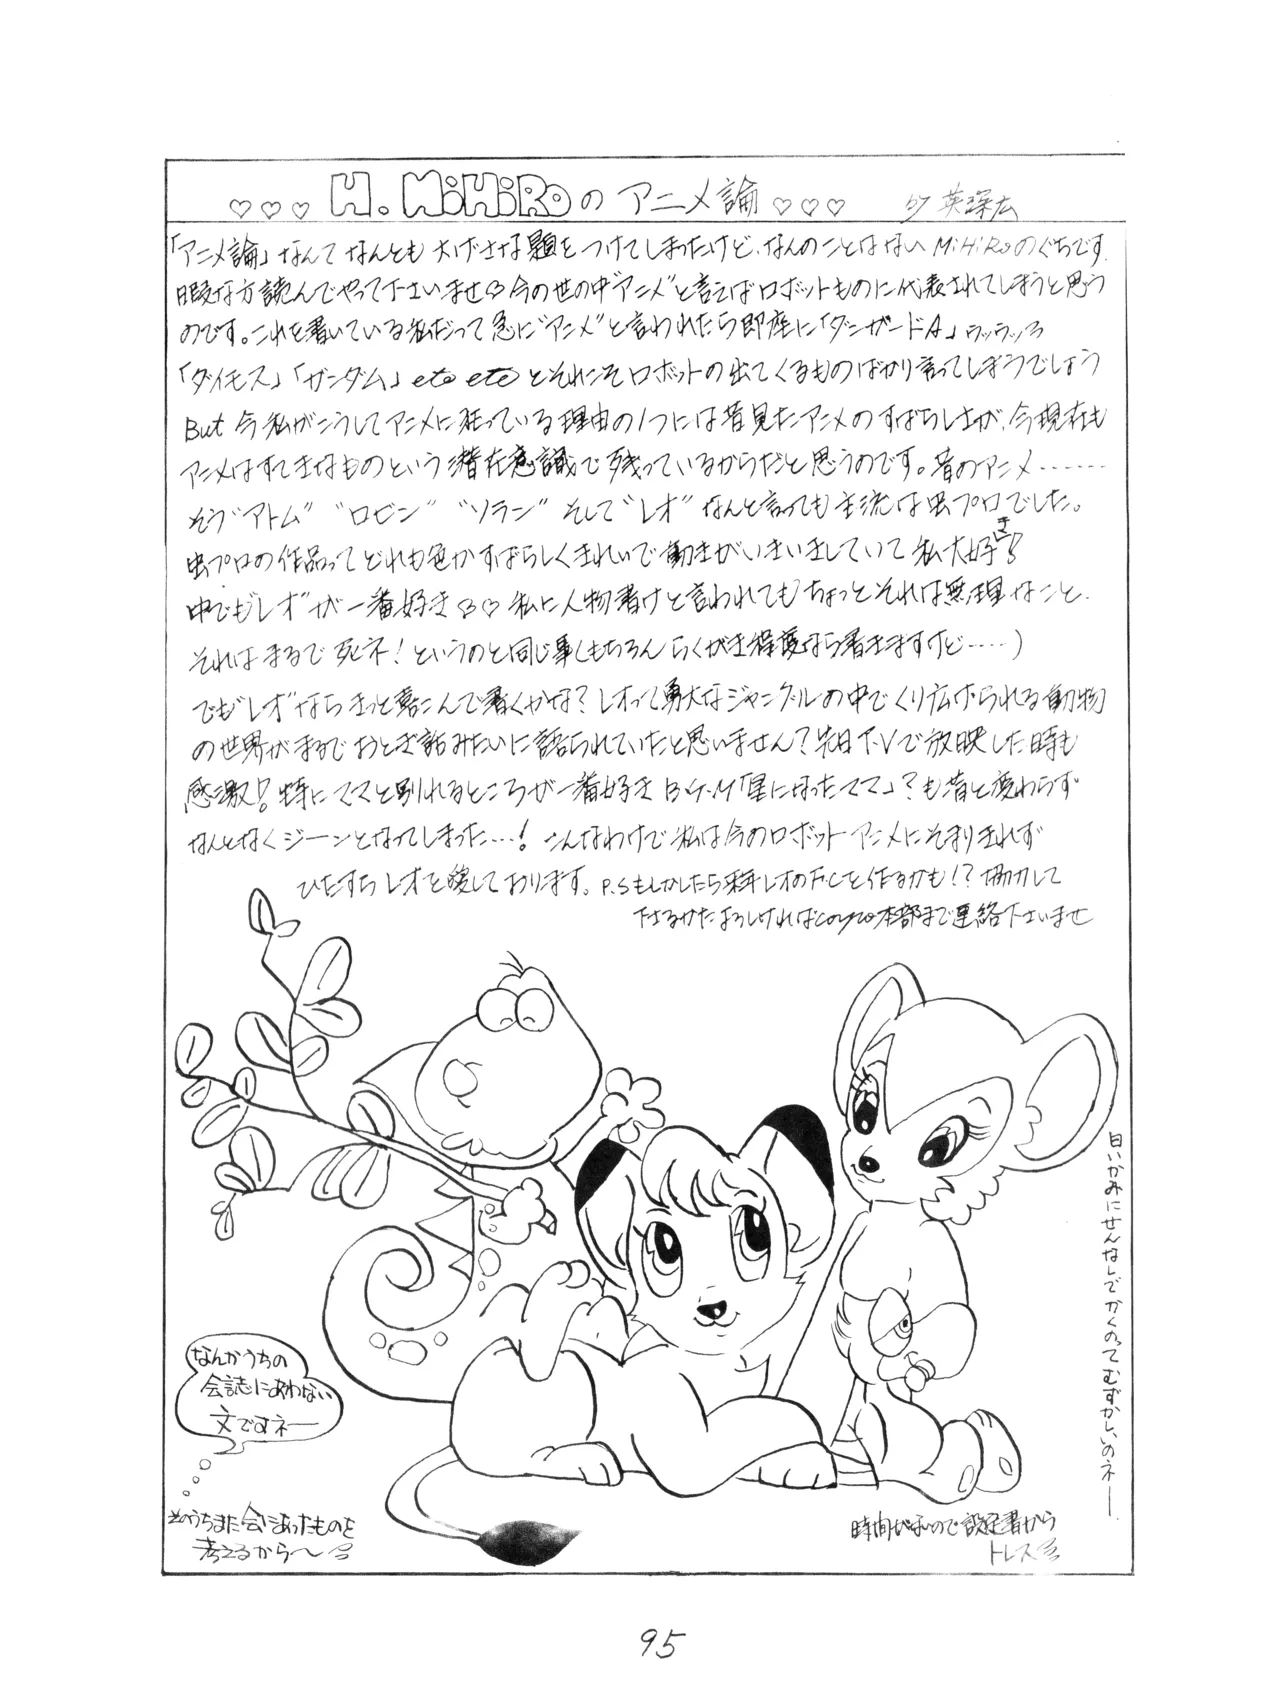 ♡♡♡ H. MiHiRoの アニメ論 ♡♡♡ by 英深広
「アニメ論」なんて なんとも 大げさな題をつけてしまったけど、なんのことはない MiHiRoのぐちです。
暇な方読んでやって下さいませ♡今の世の中"アニメ"と言えばロボットものに代表されてしまうと思う
のです。これを書いている私だって急に"アニメ"と言われたら即座に「ダンガードA」
「ダイモス」「ガンダム」etc etcとそれこそロボットの出てくるものばかり言ってしまうでしょう
But 今私がこうしてアニメに狂っている理由の1つには昔見たアニメのすばらしさが、今現在も
アニメはすてきなものという潜在意識で残っているからだと思うのです。昔のアニメ………
そう"アトム" "ロビン" "ソラン" そして"レオ" なんと言っても主流は虫プロでした。
虫プロの作品ってどれも色がすばらしくきれいで動きがいきいきしていて 私大好き!
中でも"レオ"が一番好き♡♡ 私に人物書けと言われてもちょっとそれは無理なこと、
それはまるで 死ネ!というのと同じ事(もちろん らくがき程度なら書きますけど……)
でも"レオ"なら きっと喜こんで書くかな?レオって勇大なジャングルの中でくり広げられる動物
の世界がまるでおとぎ話みたいに語られていたと思いません?先日T.Vで放映した時も
感激!特にママと別れるところが一番好き B・G・M「星になったママ」?も昔と変わらず
なんとなくジーンとなってしまった…! こんなわけで私は今のロボットアニメにそまりきれず
ひたすらレオを愛しております。P.Sもしかしたら来年レオのF.Cを作るかも!?協力して
下さるかたよろしければ本部まで連絡下さいませ
白いかみにせんなしでかくのってむずかしいのネー
なんかうちの
会誌にあわない
文ですネー
そのうちまた会にあったものを
考えるから〜
時間がないので設定書から
トレス
95